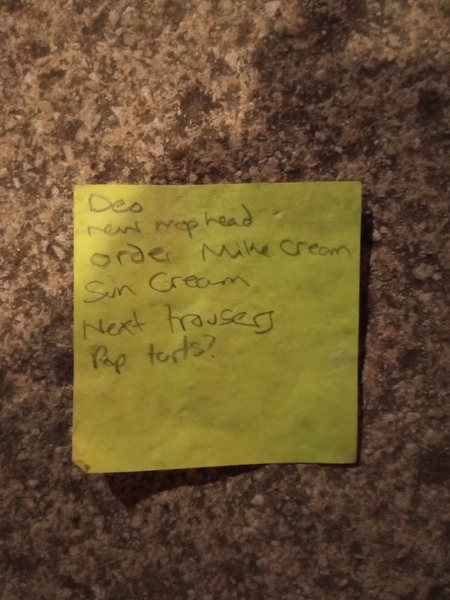 Deo
new mop head
order Milk Cream
Sun Cream
Next trousers
Pop tarts?